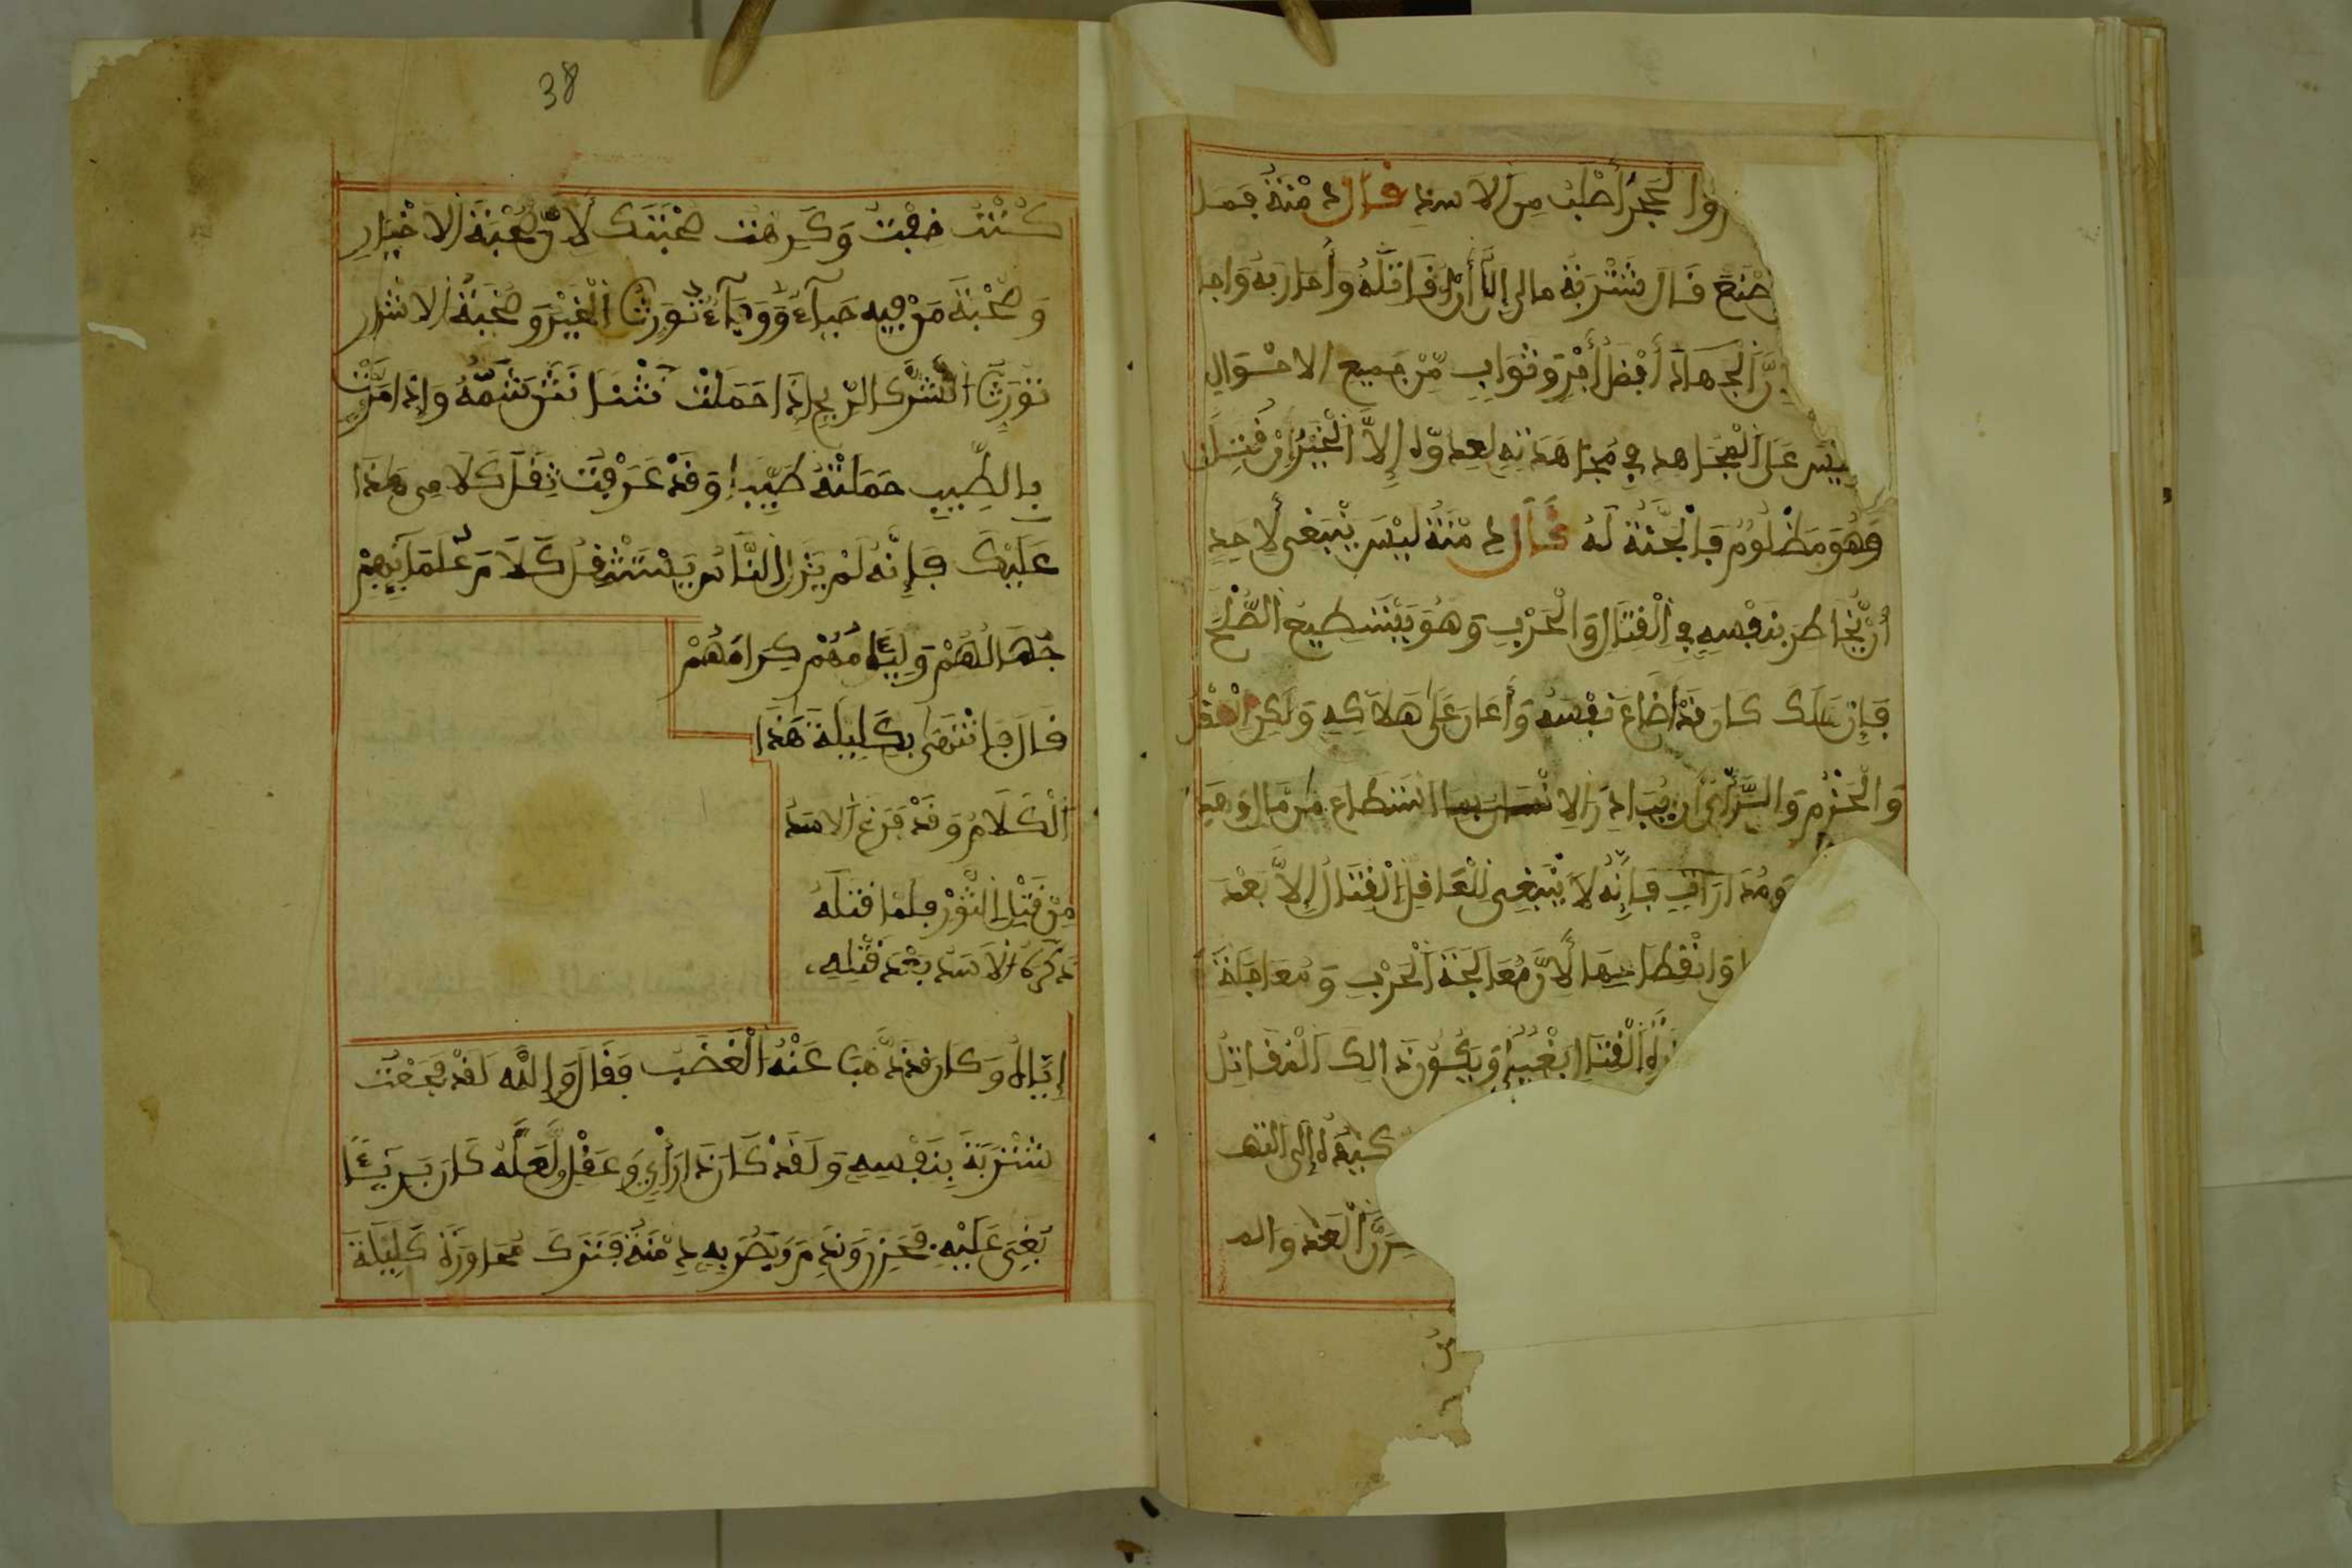 والحجر أصلب من الاسد قال دمنة فما
تصنع قال شتربة مالى إلا أن أقاتله وأحاربه واجا
الجهاد أفضل أجر وثواب من جميع الاحوال
ليس على المجاهد في مجاهدته لعدوه إلا الخير إن قتل
وهو مظلوم فالجنة له قال دمنة ليس ينبغى لأحد
أن يخاطر بنفسه في القتال والحرب وهو يستطيع الصلح
فإن هلك كان قد أضاع نفسه وأعان على هلاكه ولكن العقل
والحزم والرأى أن يبادر الانسان بما استطاع من مال وهد
ومدارات فإنه لا ينبغى للعاقل القتال إلا بعد
وانقطاعها لأن معالجة الحرب ومعاجلة
القتال بغيا ويكون ذالك المقاتل
إلى النه
العدو الم
38
كنت خفت وكرهت صحبتك لأن صحبة الاخيار
وصحبة من فيه حياء ووفاء تورث الخير وصحبة الاشرار
تورث الشر كالريح إذا حملت نتنا نتن شمه وإذا مرت
بالطيب حملته طيبا وقد عرفت ثقل كلامى هذا
عليك فإنه لم يزال الناس يستثقل كلام علمائهم
جهالهم ولئامهم كرامهم
قال فانتهى بكليلة هذا
الكلام وقد فرغ الاسد
من قتل الثور فلما قتله
تذكره الاسد بعد قتله
إياه وكان قد ذهب عنه الغضب فقال والله لقد فجعت
شتربة بنفسه ولقد كان ذا رأي وعقل ولعله كان بريئا
بغى عليه فحزن وندم وبصر به دمنة فترك محاورة كليلة